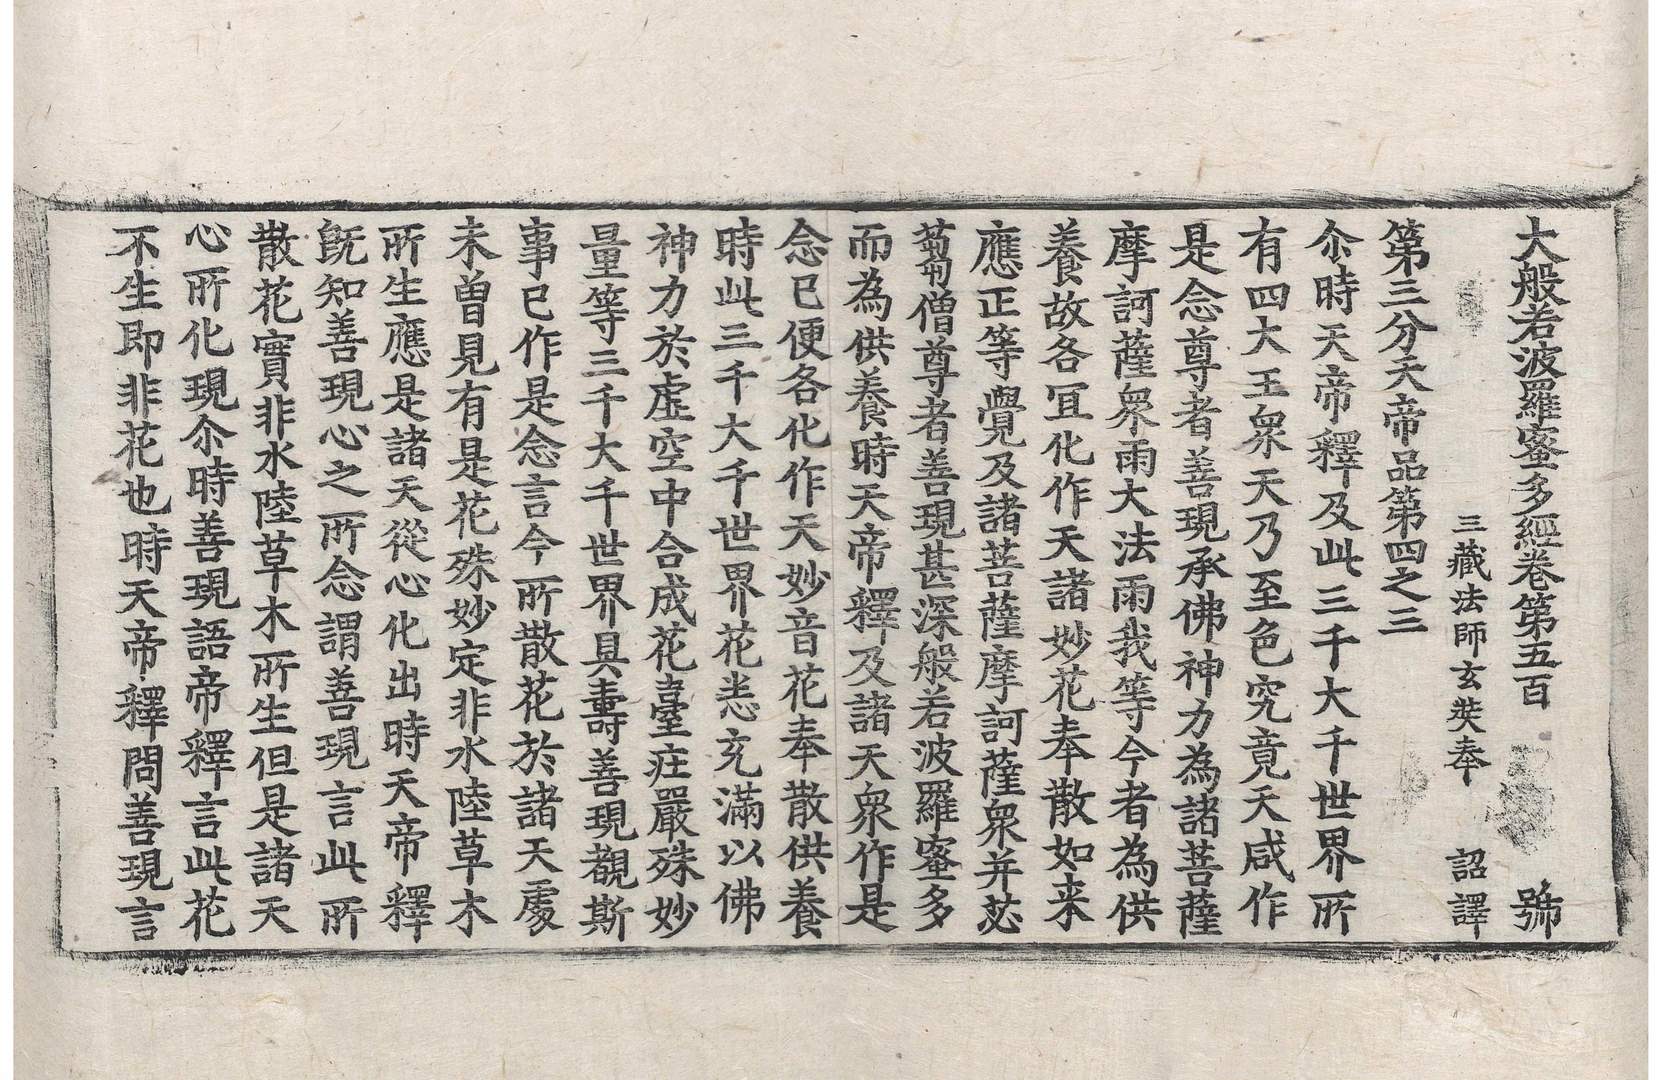 大般若波羅蜜多經卷第五百　號
三藏法師玄奘奉　詔譯
第三分天帝品第四之三
尒時天帝釋及此三千大千世界所
有四大王衆天乃至色究竟天咸作
是念尊者善現承佛神力為諸菩薩
摩訶薩衆雨大法雨我等今者為供
養故各冝化作天諸妙花奉散如来
應正等覺及諸菩薩摩訶薩衆并苾
蒭僧尊者善現甚深般若波羅蜜多
而為供養時天帝釋及諸天衆作是
念已便各化作天妙音花奉散供養
時此三千大千世界花悉充滿以佛
神力於虛空中合成花臺莊嚴殊妙
量等三千大千世界具壽善現覩斯
事已作是念言今所散花於諸天處
未曽見有是花殊妙定非水陸草木
所生應是諸天從心化出時天帝釋
旣知善現心之所念謂善現言此所
散花實非水陸草木所生但是諸天
心所化現尒時善現語帝釋言此花
不生即非花也時天帝釋問善現言